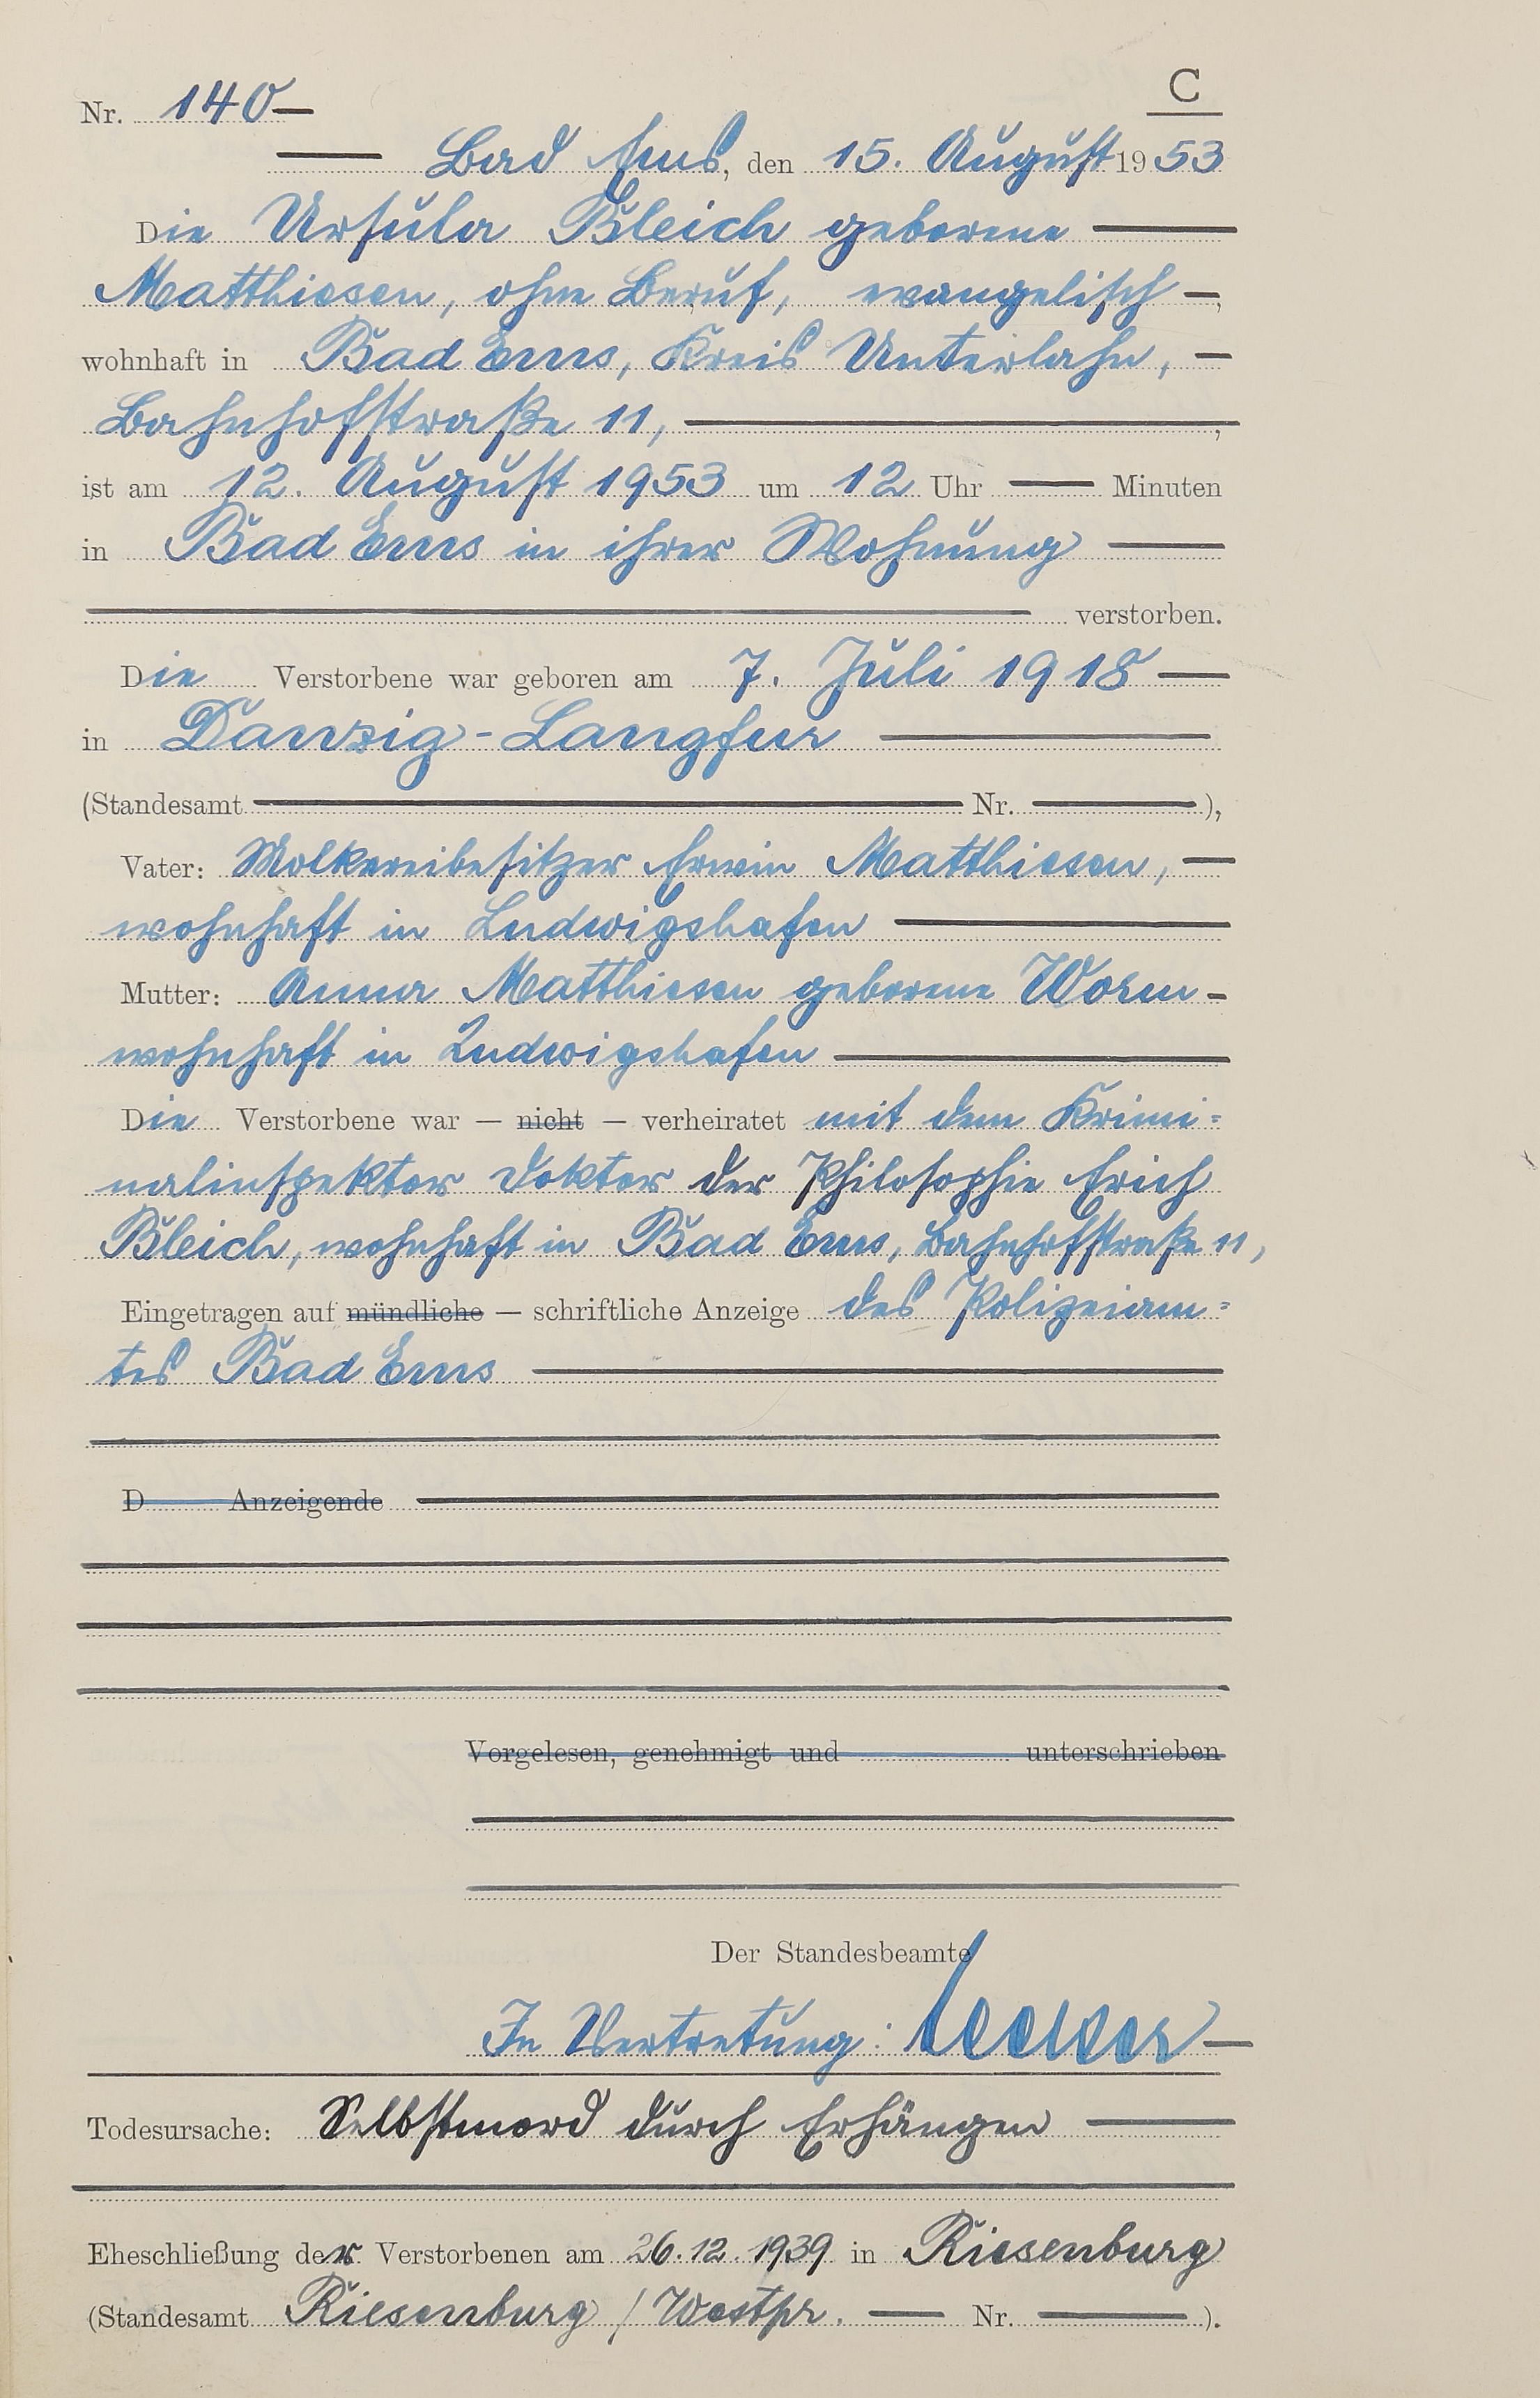 C
Nr. 140
Bad Ems, den 15. August 1953
Die Ursula Bleich geborene
Matthiesen, ohne Beruf, evangelisch,
wohnhaft in Bad Ems, Kreis Unterlahn,
Bahnhofstraße 11,
ist am 12. August 1953 um 12 Uhr Minuten
in Bad Ems in ihrer Wohnung
verstorben.
Die Verstorbene war geboren am 7. Juli 1918
in Danzig-Langfur
(Standesamt Nr. ),
Vater: Molkereibesitzer Erwin Matthiesen,
wohnhaft in Ludwigshafen
Mutter: Anna Matthiesen geborene Worm
wohnhaft in Ludwigshafen
Die Verstorbene war — nicht — verheiratet mit dem Krimi=
nalinspektor Doktor der Philosophie Erich
Bleich, wohnhaft in Bad Ems, Bahnhofstraße 11,
Eingetragen auf mündliche — schriftliche Anzeige des Polizeiam=
tes Bad Ems
D Anzeigende
Vorgelesen, genehmigt und unterschrieben
Der Standesbeamte
In Vertretung:
Todesursache: Selbstmord durch Erhängen
Eheschließung der Verstorbenen am 26.12.1939 in Riesenburg
(Standesamt Riesenburg / Westpr. Nr. ).